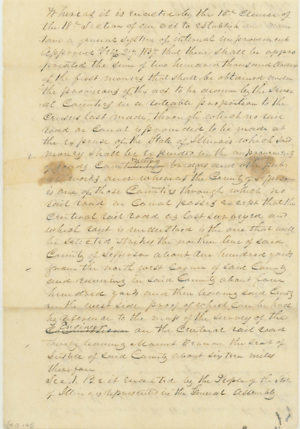 Whereas it is enacted by the 18th Clause of
the 18th Section of an act to establish and main
tain a general system of internal improvement
approved Feby 27, 1837 that there shall be appro
priated the Sum of two hundred thousand Dollars
of the first moneys that shall be obtained under
the provisions of this act to be drawn by the Sever
al Counties in a rateable proportion to the
Census last made, through which no rail
road or Canal is provided to be made at
the expense of the State of Illinois which said
money shall be expended in the improvement
of roads
bridges and other public
works and whereas the County of Jefferson
is one of those Counties through which no
rail road or Canal passes except that the
Central rail road as last surveyed and
which said is understood is the one that will
be selected strikes the northern line of said
County of Jefferson about one hundred yards
from the north west Corner of said County
and running in said County about
hundred yards and then leaving said County
on the west side proof of which can be had
by reference to the map of the Survey of the
Engineer on the Central rail road
thereby leaving Mount Vernon the Seat of
Justice of said County about sixteen miles
therefrom
Sec. 1. Be it enacted by the People of the State
of Illinois represented in the General Assembly